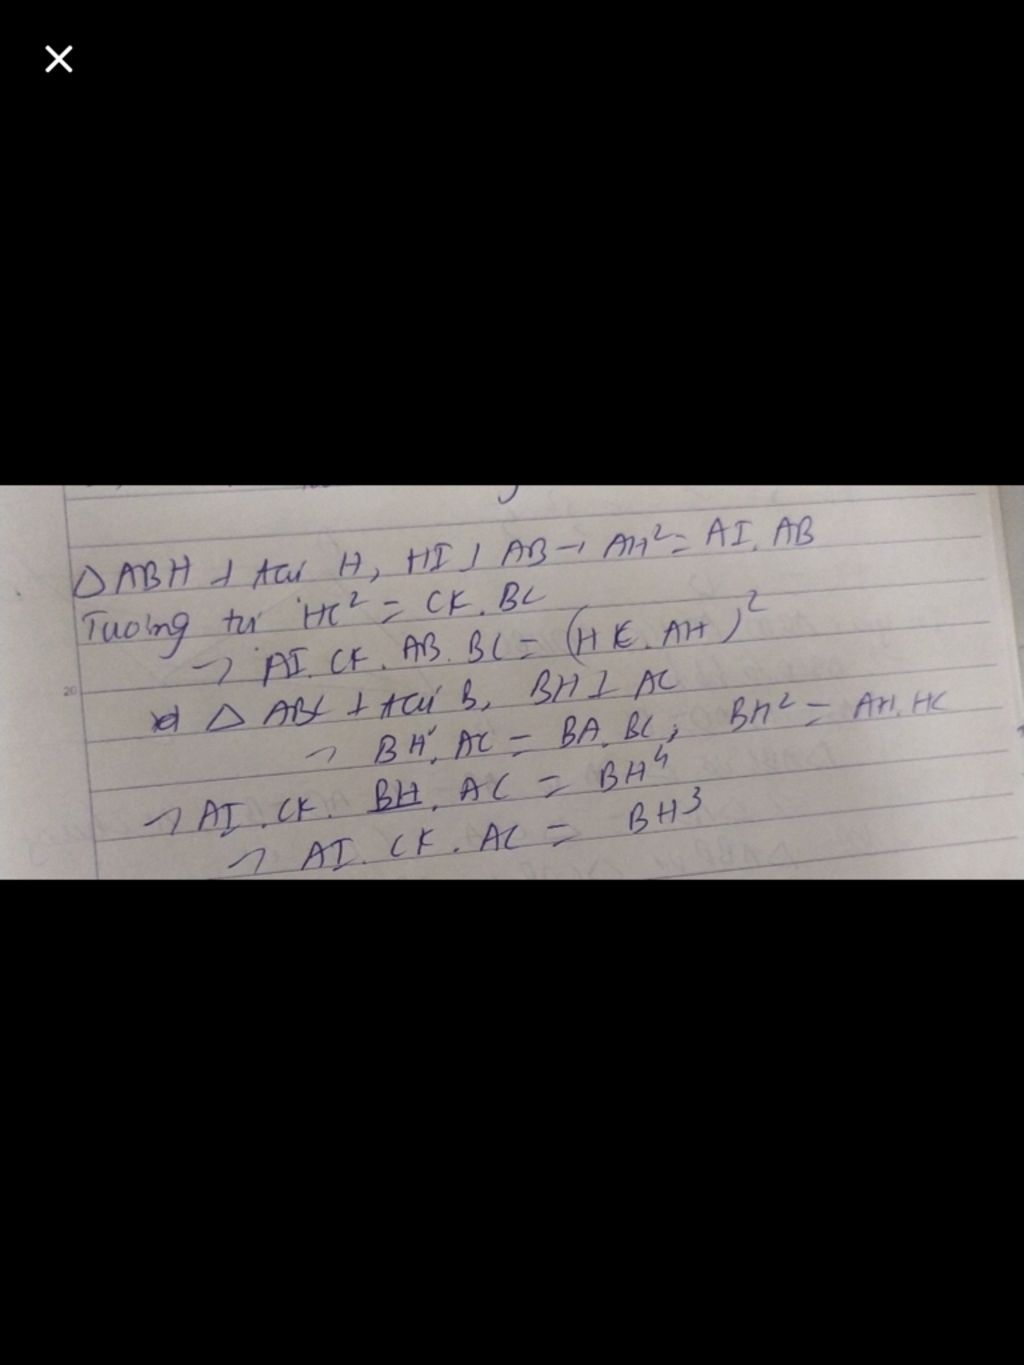 △ABH ⊥ tại H, HI ⊥ AB → AH² = AI. AB
Tương tự HC² = CK. BC
→ AI. CK. AB. BC = (HC. AH)²
△ ABC ⊥ tại B, BH ⊥ AC
→ BH. AC = BA. BC, BH² = AH. HC
→ AI. CK. BH. AC = BH⁴
→ AI. CK. AC = BH³